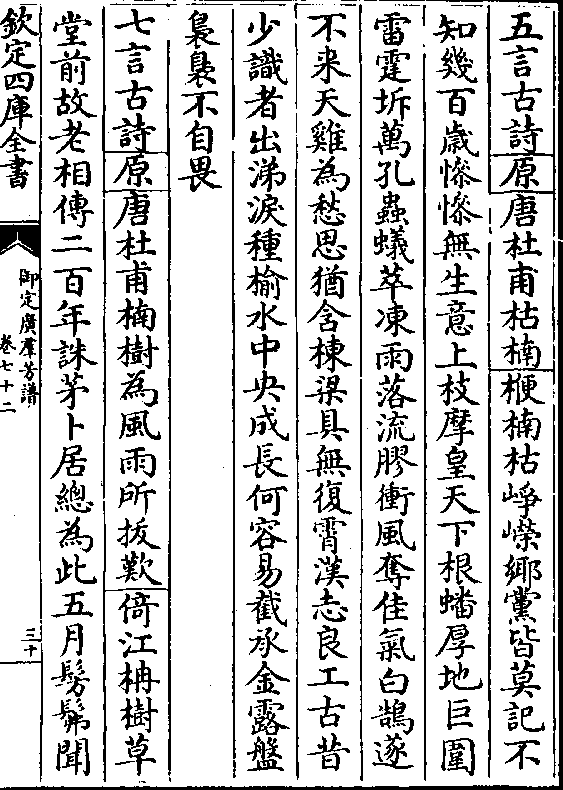 五言古詩原唐杜甫枯楠楩楠枯崢嶸鄉黨皆莫記不
知幾百歲慘慘無生意上枝摩皇天下根蟠厚地巨圍
雷霆坼萬孔蟲蟻萃凍雨落流膠衝風奪佳氣白鵠遂
不来天雞為愁思猶含棟梁具無復霄漢志良工古昔
少識者出涕淚種榆水中央成長何容易截承金露盤
裊裊不自畏
七言古詩原唐杜甫楠樹為風雨所拔歎倚江柟樹草
堂前故老相傳二百年誅茅卜居總為此五月髣髴聞
欽定四庫全書
御定廣羣芳譜
卷七十二
三十